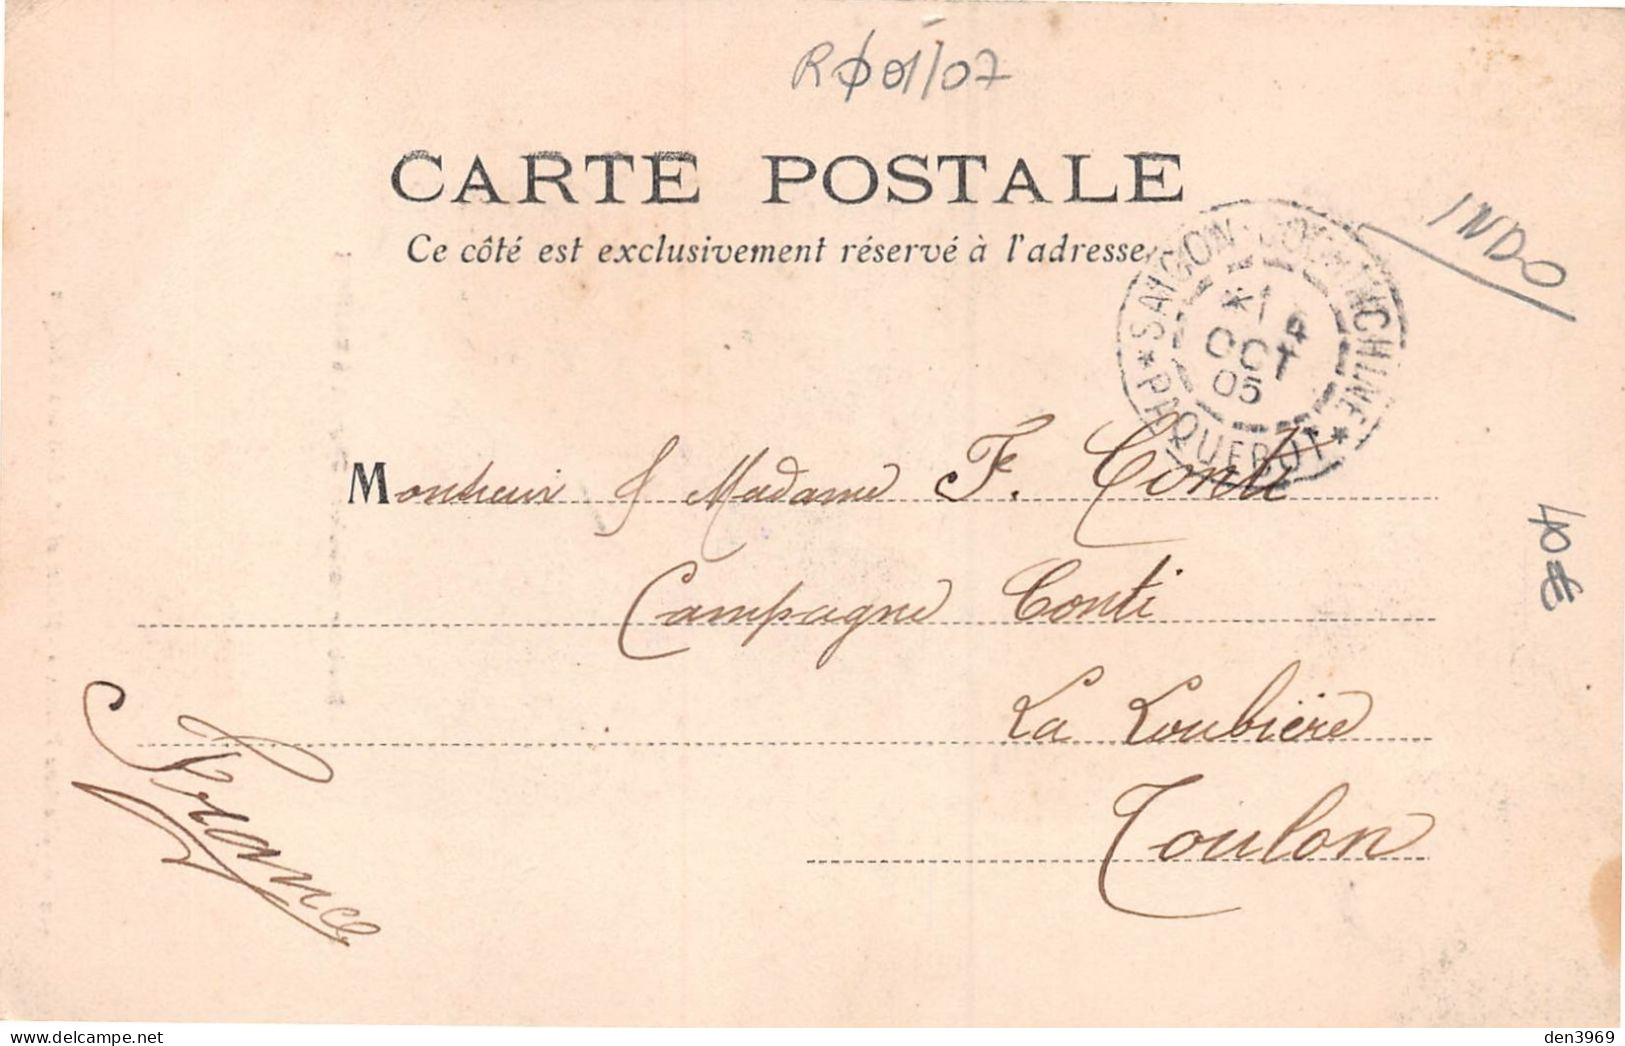 RØ01/07
CARTE POSTALE
Ce côté est exclusivement réservé à l'adresse
INDO
SAIGON COCHINCHINE
*1
4
OCT
05
* PAQUEBOT *
Monsieur & Madame F. Conti
Campagne Conti
La Loubière
Toulon
France
40€
den3969